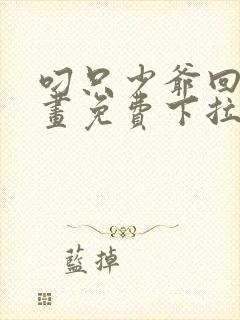 叼只少爷回
畫免費下拉
藍掉